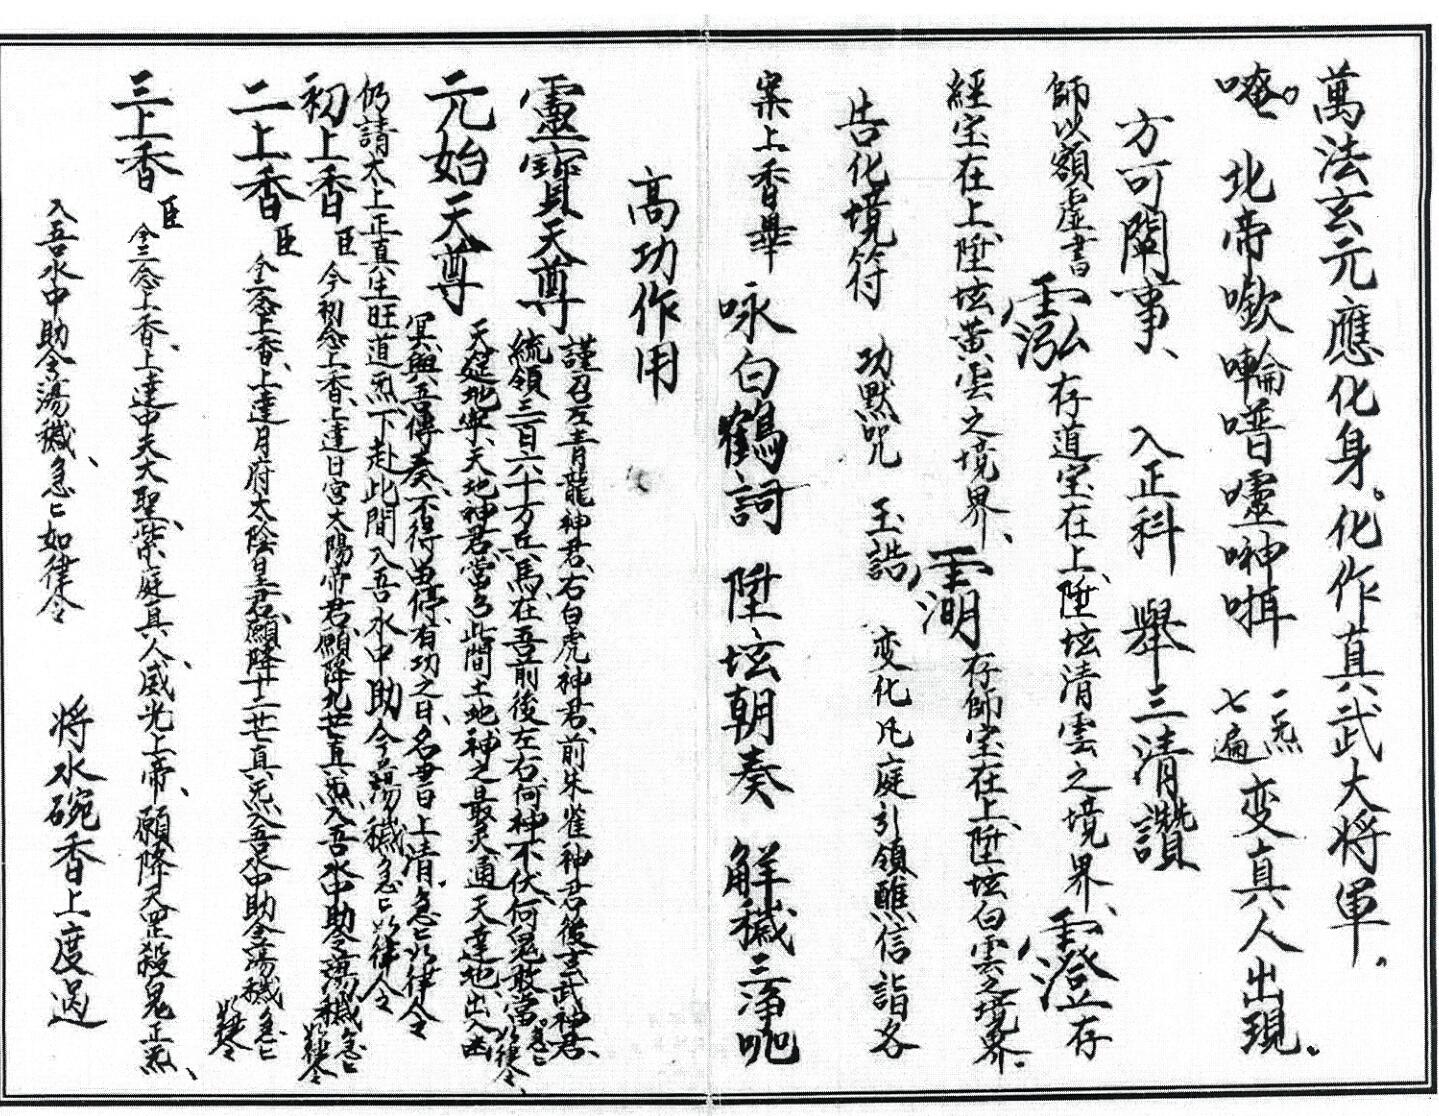 萬法玄元應化身。化作真武大将軍。
唵。北帝㘕輪噆𡅖呻哶 一炁七遍 变真人出現。
方可闡事、 入正科 舉三清讚
師以額虚書 存道宝在上陞坛清雲之境界、 存
經宝在上陞坛黄雲之境界、 存師宝在上陞坛白雲之境界.
告化境符 功默咒 玉誥 变化凡庭引領醮信詣各
案上香畢 咏白鶴詞 陞坛朝奏 解穢三净咒
高功作用
靈寳天尊 謹召左青龍神君、右白虎神君、前朱雀神君、後玄武神君、
統領三百六十万兵馬、在吾前後左右、何神不伏、何鬼敢當。急亡以律令、
元始天尊 天延地寧、天地神君、當方此間土地神之最灵、通天達地、出入幽
冥、與吾傳奏、不得留停、有功之日、名書上清、急亡以律令
仍請太上正真生旺道炁、下赴此間、入吾水中、助今蕩穢、急亡以律令
初上香 臣今初念上香、上達日宮太陽帝君、願降九芒真炁、入吾水中、助今蕩穢、急亡以律令
二上香 臣今二念上香、上達月府太陰皇君、願降十二芒真炁、入吾水中、助今蕩穢、急亡以律令
三上香 臣今三念上香、上達中天大聖、紫庭真人、威光上帝、願降天罡殺鬼正炁、
入吾水中、助今蕩穢、急亡如律令 将水碗香上度过